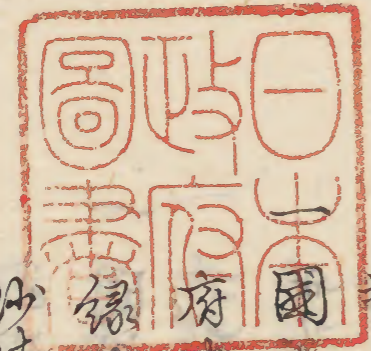 日本
政府
圖書
一國
府
縁